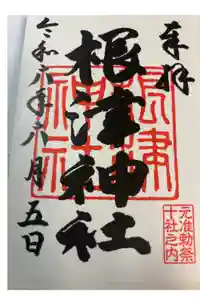 奉拝
根津神社
根津神社
令和六年六月五日
元准勅祭
十社之内